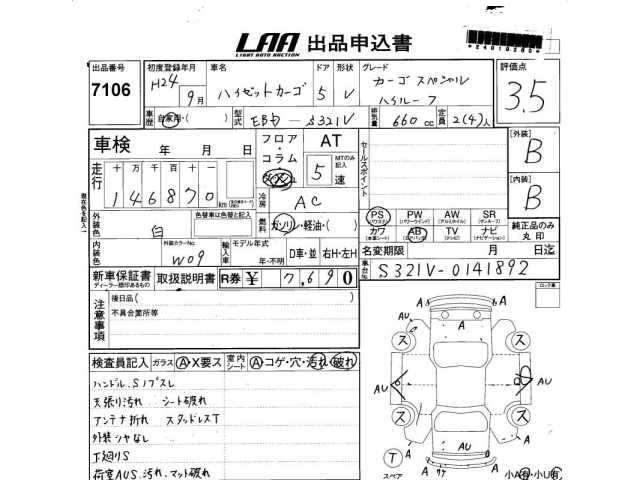 LAA 出品申込書
LIGHT AUTO AUCTION
*24019260*
出品番号 7106
初度登録年月 H24 9月
車名 ハイゼットカーゴ
ドア 5
形状 V
グレード カーゴ スペシャル
ハイルーフ
評価点 3.5
車歴 自家用・( )
型式 EBD-S321V
排気量 660 cc
定員 2(4)人
車検 年 月 日
フロア・コラム
AT
MTのみ記入
5 速
走行 十万千百十 146870 km
冷房 AC
セールスポイント
[外装] B
[内装] B
外装色 白
色替車は色替と記入
燃料 ガソリン・軽油・( )
PS (パワステ) PW (パワーウインド) AW (アルミホイル) SR (サンルーフ)
カワ (本革シート) AB (エアバッグ) TV (テレビ) ナビ (ナビゲーション)
純正品のみ丸印
内装色
外装カラーNo. W09
輸入車
モデル年式 年・不明
D車・並 右H・左H
名変期限 月 日迄
新車保証書 ディーラー捺印あるもの
取扱説明書
R券 ¥ 7,690
車台No. S321V-0141892
現在色を記入→
注意事項
後日品( )
不具合箇所等
ロック車
検査員記入 ガラス A・X要ス 室内シート A・コゲ・穴・汚れ・破れ
ハンドル、Sノブスレ
天張り汚れ シート破れ
アンテナ折れ スタッドレスT
外装ツヤなし
下廻りS
荷室AUS、汚れ、マット破れ
A A
AU A
ス ス
AU
ス ス
AU
T スペア
A サケ A
小A有・小U有